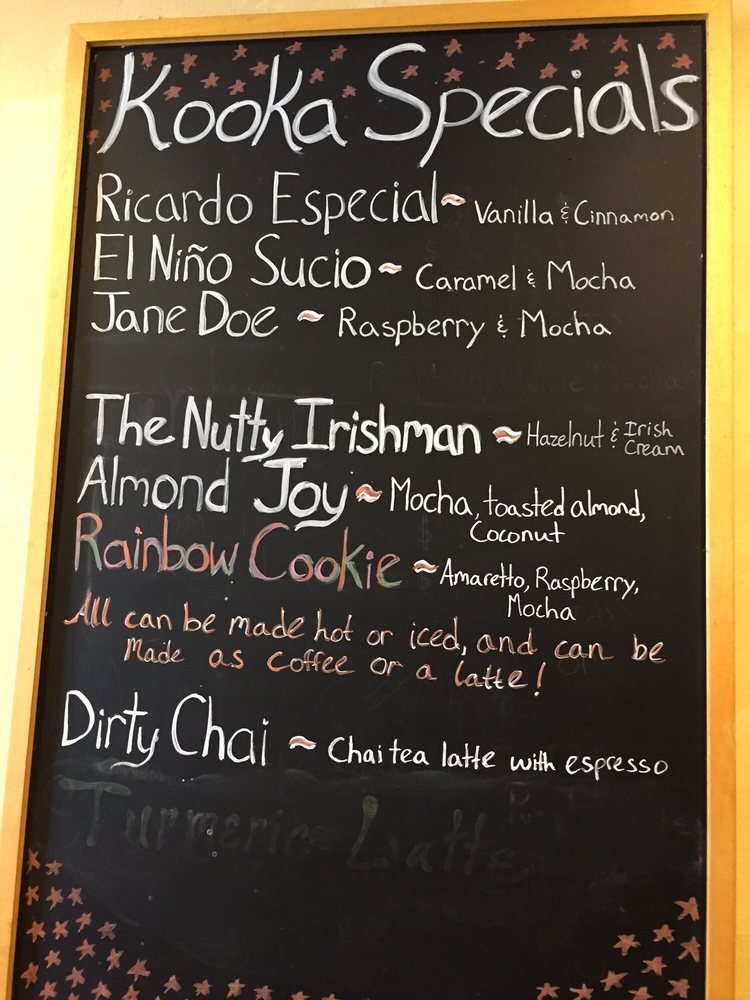 Kooka Specials
Ricardo Especial ~ Vanilla & Cinnamon
El Niño Sucio ~ Caramel & Mocha
Jane Doe ~ Raspberry & Mocha
The Nutty Irishman ~ Hazelnut & Irish Cream
Almond Joy ~ Mocha, toasted almond,
Coconut
Rainbow Cookie ~ Amaretto, Raspberry,
Mocha
All can be made hot or iced, and can be
Made as coffee or a latte!
Dirty Chai ~ Chai tea latte with espresso
Turmeric Latte